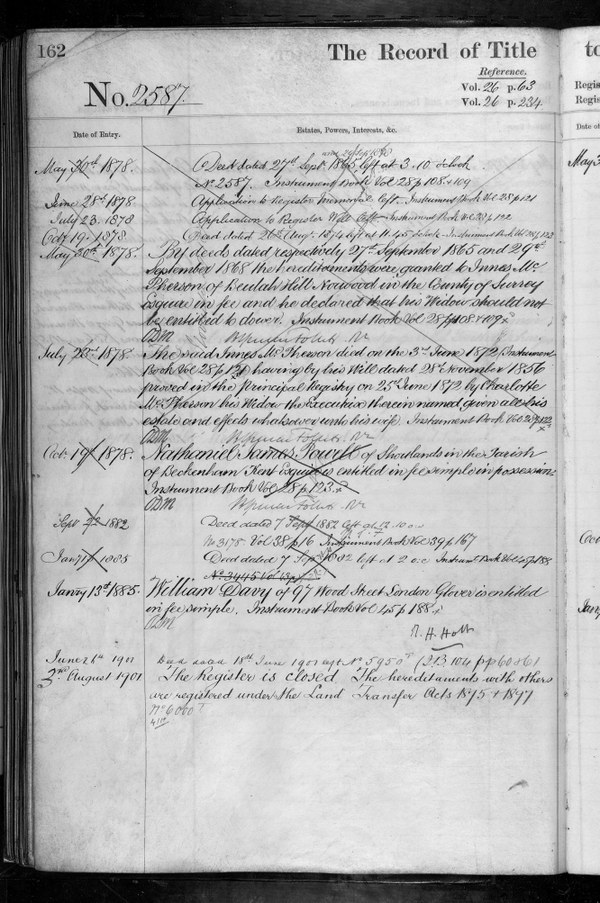 162
The Record of Title
to
Reference.
Vol. 26 p. 63
Vol. 26 p. 234
No. 2587.
Regis
Regis
Date of Entry.
Estates, Powers, Interests, &c.
Date of
May 30th 1878.
Deed dated 27th Septr. 1865, left at 3.10 o'clock
No 2587. Instrument Book Vol 28 p 108 & 109
June 28th 1878
Application to Register Memorial left. Instrument Book Vol 28 p 121
July 23. 1878
Application to Register Will left Instrument Book Vol 28 p 122
Octr 19. 1878
Deed dated 26th Augt. 1874 left at 11.45 o'clock Instrument Book Vol 28 p 123
May 30th 1878.
By deeds dated respectively 27th September 1865 and 29th
September 1868 the hereditaments were granted to Innes Mc
Pherson of Beulah Hill Norwood in the County of Surrey
Esquire in fee and he declared that his Widow should not
be entitled to dower. Instrument Book Vol 28 p 108 & 109
July 23rd 1878
The said Innes McPherson died on the 3rd June 1872 (Instrument
Book Vol 28 p 121) having by his Will dated 28th November 1856
proved in the Principal Registry on 25th June 1872 by Charlotte
McPherson his Widow the Executrix therein named given all his
estate and effects whatsoever unto his wife. Instrument Book Vol 28 p 122
Octr 19th 1878.
Nathaniel James Powell of Shortlands in the Parish
of Beckenham Kent Esquire is entitled in fee simple in possession.
Instrument Book Vol 28 p 123.
Septr 1882
Deed dated 7 Sept 1882 left at 12.10 o.c
No 3178 Vol 38 p 16 Instrument Book Vol 39 p 167
Jany 1885
Deed dated 7 left at 2 o.c Instrumt Book Vol 45 p 188
No 3445 Vol
Janry 13th 1885.
William Davy of 97 Wood Street London Glover is entitled
in fee simple. Instrument Book Vol 45 p 188
R. H. Holt
June 26th 1901
Deed dated 18th June 1901 No 5950 (213.104 pp 60 & 61
2nd August 1901
The Register is closed The hereditaments with others
are registered under the Land Transfer Acts 1875 & 1897
No 6000
May 3
Oct
Jan